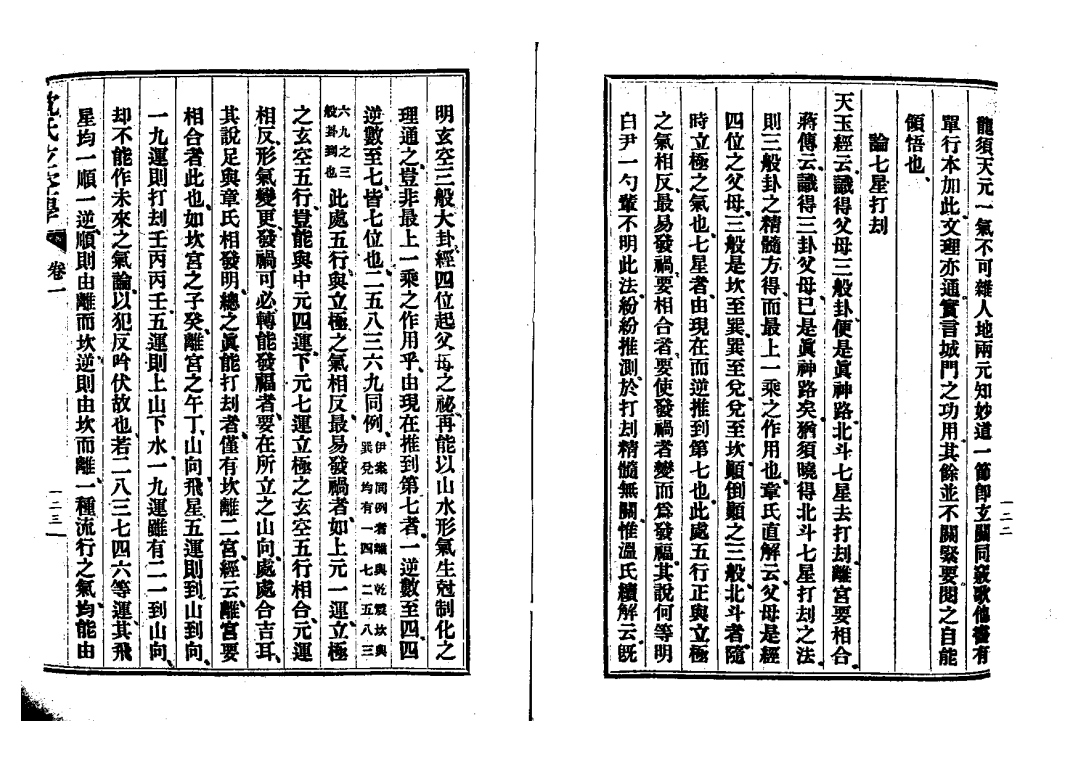 龍須天元一氣不可雜人地兩元知妙道一節卽玄關同竅歌他書有
單行本加此文理亦通實言城門之功用其餘並不關緊要閱之自能
領悟也、
論七星打刦
天玉經云、識得父母三般卦、便是眞神路、北斗七星去打刦、離宮要相合、
蔣傳云、識得三卦父母、已是眞神路矣、猶須曉得北斗七星打刦之法、
則三般卦之精髓方得、而最上一乘之作用也、章氏直解云、父母是經
四位之父母、三般是坎至巽、巽至兌、兌至坎、顚倒顚之三般、北斗者、隨
時立極之氣也、七星者、由現在而逆推到第七也、此處五行、正與立極
之氣相反、最易發禍、要相合者、要使發禍者變而爲發福、其說何等明
白、尹一勺輩不明此法、紛紛推測、於打刦精髓無關、惟溫氏續解云、旣
一二二
明玄空三般大卦、經四位起父母之祕、再能以山水形氣生尅制化之
理通之、豈非最上一乘之作用乎、由現在推到第七者、一逆數至四、四
逆數至七、皆七位也、二五八三六九同例、伊案同例者離與乾震坎與巽兌均有一四七二五八三
六九之三般卦到也此處五行、與立極之氣相反、最易發禍者、如上元一運立極
之玄空五行、豈能與中元四運、下元七運立極之玄空五行相合、元運
相反、形氣變更、發禍可必、轉能發福者、要在所立之山向、處處合吉耳、
其說足與章氏相發明、總之眞能打刦者、僅有坎離二宮、經云、離宮要
相合者此也、如坎宮之子癸、離宮之午丁、山向飛星、五運則到山到向、
一九運則打刦、壬丙丙壬、五運則上山下水、一九運雖有二一到山向、
却不能作未來之氣論、以犯反吟伏故也、若二八三七四六等運、其飛
星均一順一逆、順則由離而坎、逆則由坎而離、一種流行之氣、均能由
沈氏玄空學
卷一
一二三